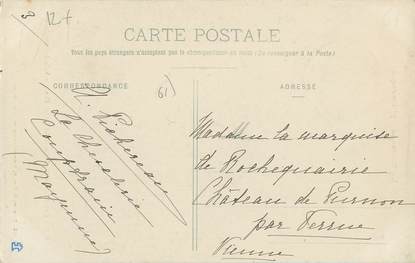 3
12 +
CARTE POSTALE
Tous les pays étrangers n'acceptent pas la correspondance au recto (Se renseigner à la Poste)
CORRESPONDANCE
61)
ADRESSE
La
(Mayenne)
Madame La marquise
de Rochequairie
Château de Purnon
par Verrue
Vienne